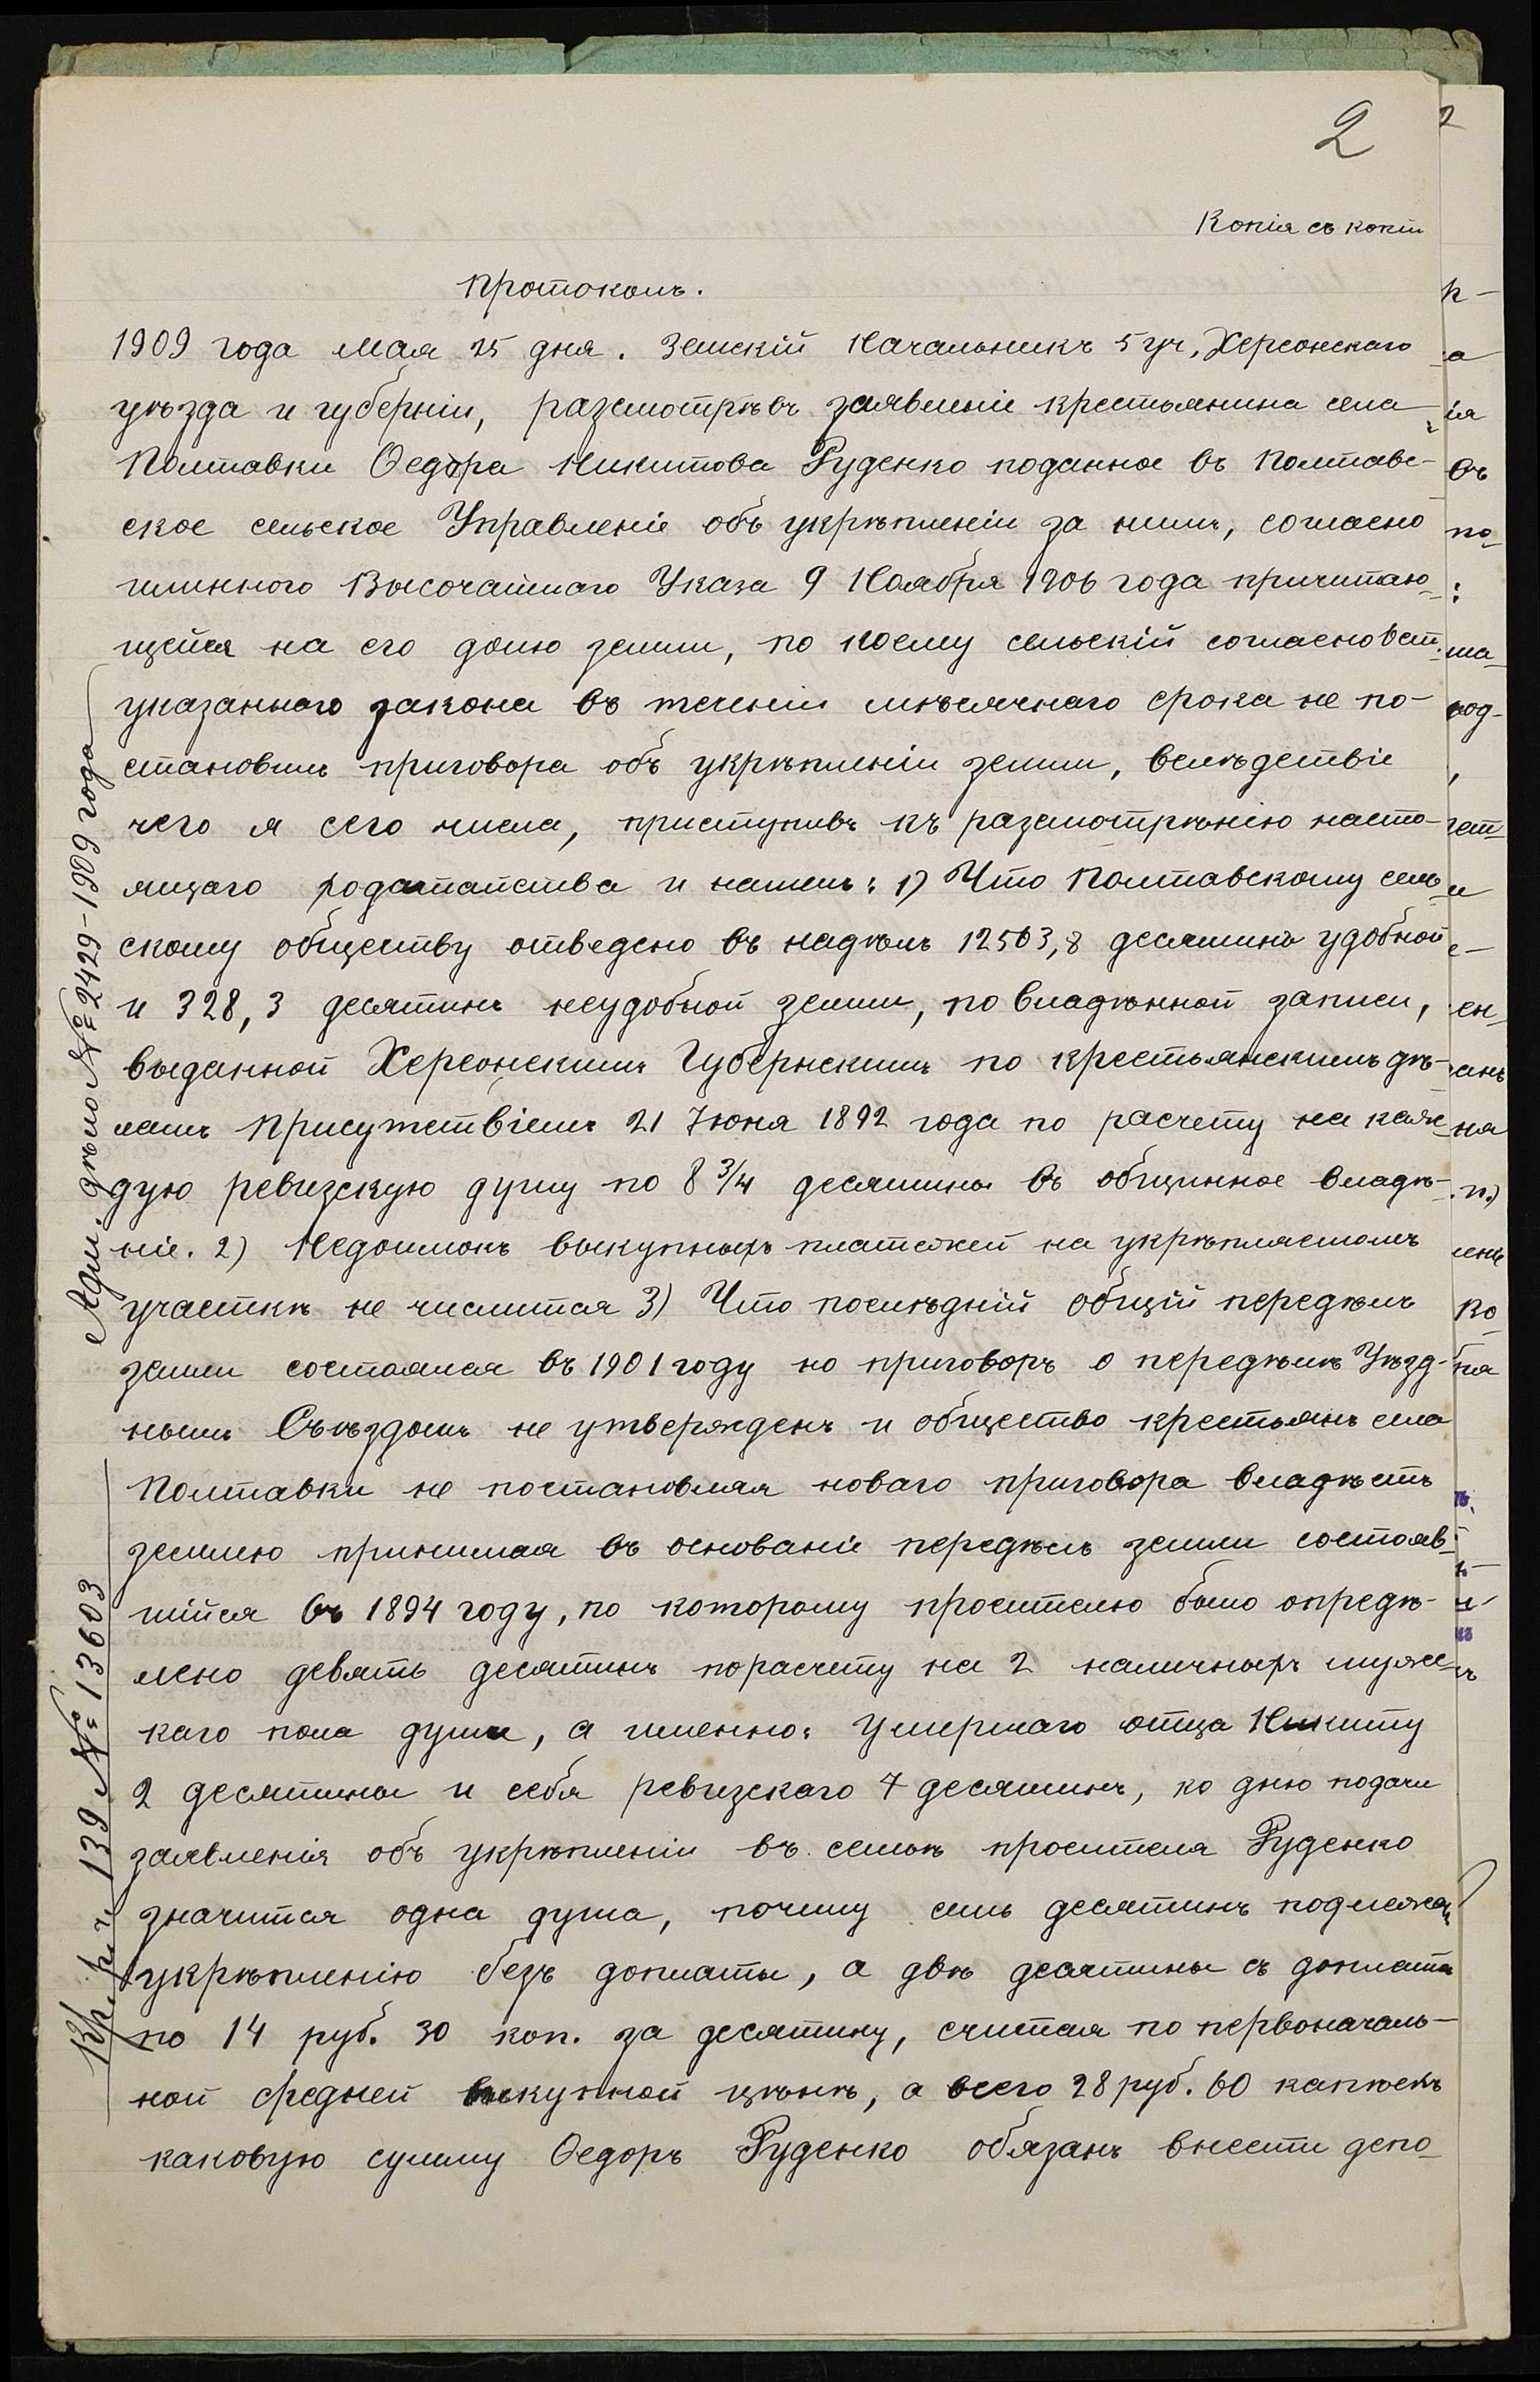 2
Копія съ копіи
Протоколъ.
1909 года Мая 25 дня. Земскій Начальникъ 5 уч, Херсонскаго
уѣзда и губерніи, разсмотрѣвъ заявленіе крестьянина села
Полтавки Ѳедора Никитова Руденко поданное въ Полтавс-
кое сельское Управленіе объ укрѣпленіи за нимъ, согласно
именного Высочайшаго Указа 9 Ноября 1906 года причитаю-
щейся на его долю земли, по коему сельскій согласно 6 ст.
указаннаго закона въ теченіи мѣсячнаго срока не по-
становилъ приговора объ укрѣпленіи земли, вслѣдствіе
чего я сего числа, приступивъ къ разсмотрѣнію насто-
ящаго ходатайства и нашелъ: 1) Что Полтавскому сель
скому обществу отведено въ надѣлъ 12563,8 десятины удобной
и 328,3 десятинъ неудобной земли, по владѣнной записи,
выданной Херсонскимъ Губернскимъ по крестьянскимъ дѣ-
ламъ Присутствіемъ 21 Іюня 1892 года по расчету на каж-
дую ревизскую душу по 8 3/4 десятины въ общинное владѣ-
ніе. 2) Недоимокъ выкупныхъ платежей на укрѣпляемомъ
участкѣ не числится 3) Что послѣдній общій передѣлъ
земли состоялся въ 1901 году но приговоръ о передѣлѣ Уѣзд-
нымъ Съѣздомъ не утвержденъ и общество крестьянъ села
Полтавки не постановляя новаго приговора владѣетъ
землею принимая въ основаніе передѣлъ земли состояв-
шійся въ 1894 году, по которому просителю было опредѣ-
лено девять десятинъ порасчету на 2 наличныхъ мужс-
каго пола души, а именно: умершаго отца Никиту
2 десятины и себя ревизскаго 7 десятинъ, ко дню подачи
заявленія объ укрѣпленіи въ семьѣ просителя Руденко
значится одна душа, почему семь десятинъ подлежатъ
укрѣпленію безъ доплаты, а двѣ десятины съ доплатой
по 14 руб. 30 коп. за десятину, считая по первоначаль-
ной средней выкупной цѣнѣ, а всего 28 руб. 60 капѣекъ
каковую сумму Ѳедоръ Руденко обязанъ внести депо-
Адм. дѣло № 2429-1909 года
Кр. р. ч. 139 № 13603